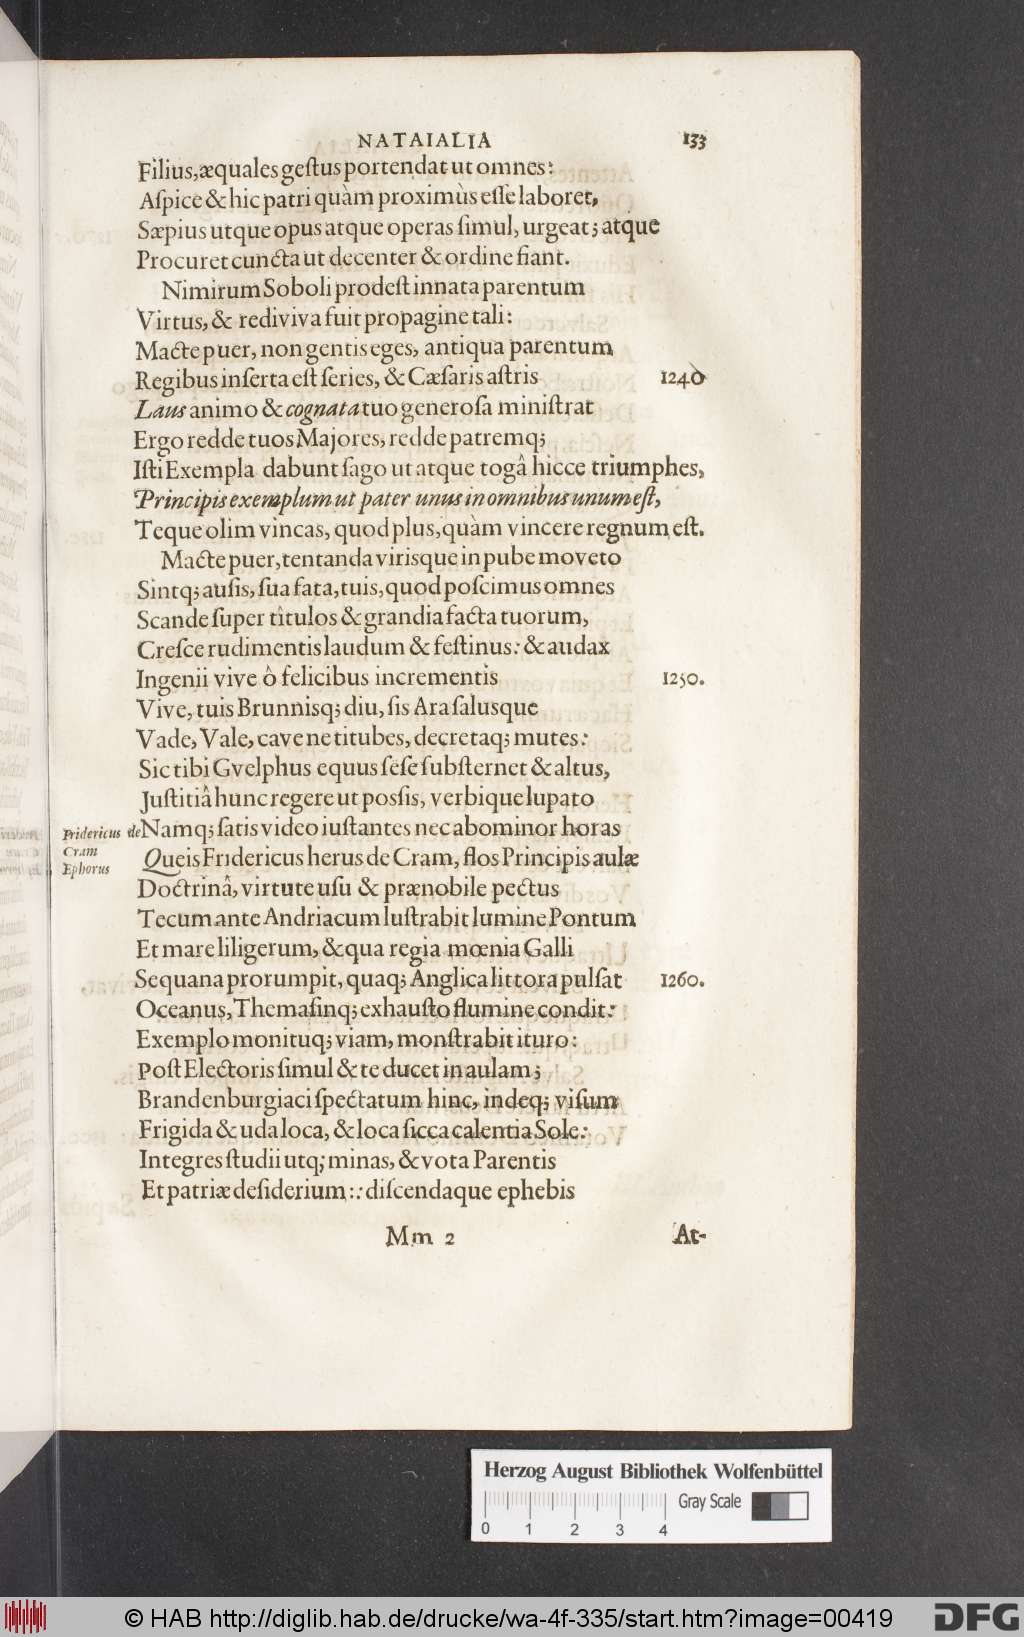 NATAIALIA 133
Filius, æquales geſtus portendat ut omnes:
Aſpice & hic patri quàm proximùs eſſe laboret,
Sæpius utque opus atque operas ſimul, urgeat; atque
Procuret cuncta ut decenter & ordine fiant.
Nimirum Soboli prodeſt innata parentum
Virtus, & rediviva fuit propagine tali:
Macte puer, non gentis eges, antiqua parentum
Regibus inſerta eſt ſeries, & Cæſaris aſtris 1240
Laus animo & cognata tuo generoſa miniſtrat
Ergo redde tuos Majores, redde patremq;
Iſti Exempla dabunt ſago ut atque togâ hicce triumphes,
Principis exemplum ut pater unus in omnibus unum eſt,
Teque olim vincas, quod plus, quàm vincere regnum eſt.
Macte puer, tentanda virisque in pube moveto
Sintq; auſis, ſua fata, tuis, quod poſcimus omnes
Scande ſuper titulos & grandia facta tuorum,
Creſce rudimentis laudum & feſtinus: & audax
Ingenii vive ô felicibus incrementis 1250.
Vive, tuis Brunnisq; diu, ſis Ara ſalusque
Vade, Vale, cave ne titubes, decretaq; mutes:
Sic tibi Gvelphus equus ſeſe ſubſternet & altus,
Juſtitiâ hunc regere ut poſſis, verbique lupato
Fridericus de Cram Ephorus
Namq; ſatis video iuſtantes nec abominor horas
Queis Fridericus herus de Cram, flos Principis aulæ
Doctrinâ, virtute uſu & prænobile pectus
Tecum ante Andriacum luſtrabit lumine Pontum
Et mare liligerum, & qua regia mœnia Galli
Sequana prorumpit, quaq; Anglica littora pulſat 1260.
Oceanus, Themaſinq; exhauſto flumine condit:
Exemplo monituq; viam, monſtrabit ituro:
Poſt Electoris ſimul & te ducet in aulam;
Brandenburgiaci ſpectatum hinc, indeq; viſum
Frigida & uda loca, & loca ſicca calentia Sole:
Integres ſtudii utq; minas, & vota Parentis
Et patriæ deſiderium:: diſcendaque ephebis
Mm 2 At-
Herzog August Bibliothek Wolfenbüttel
0 1 2 3 4 Gray Scale
© HAB http://diglib.hab.de/drucke/wa-4f-335/start.htm?image=00419 DFG